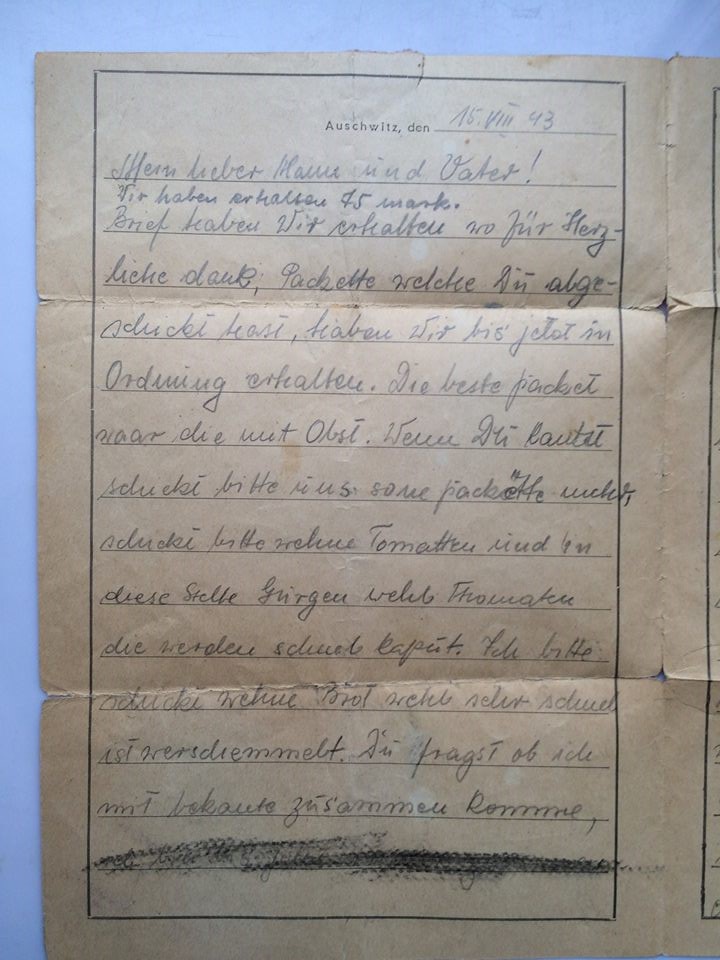 Auschwitz, den 15.VIII 43
Mein lieber Mann und Vater!
Wir haben erhalten 75 mark.
Brief haben Wir erhalten wo für Herz-
liche dank, Packette welche Du abge-
schickt hast, haben Wir bis jetzt in
Ordnung erhalten. Die beste packet
waar die mit Obst. Wenn Du kanst
schickt bitte uns sone packette mehr,
schickt bitte wehne Tomatten und in
diese Stelle Gurgen welb Thomaten
die werden schnel kaput. Ich bitte
schickt wehne Brot welb sehr schnel
ist verschemmelt. Du fragst ob ich
mit bekante zusammen komme,